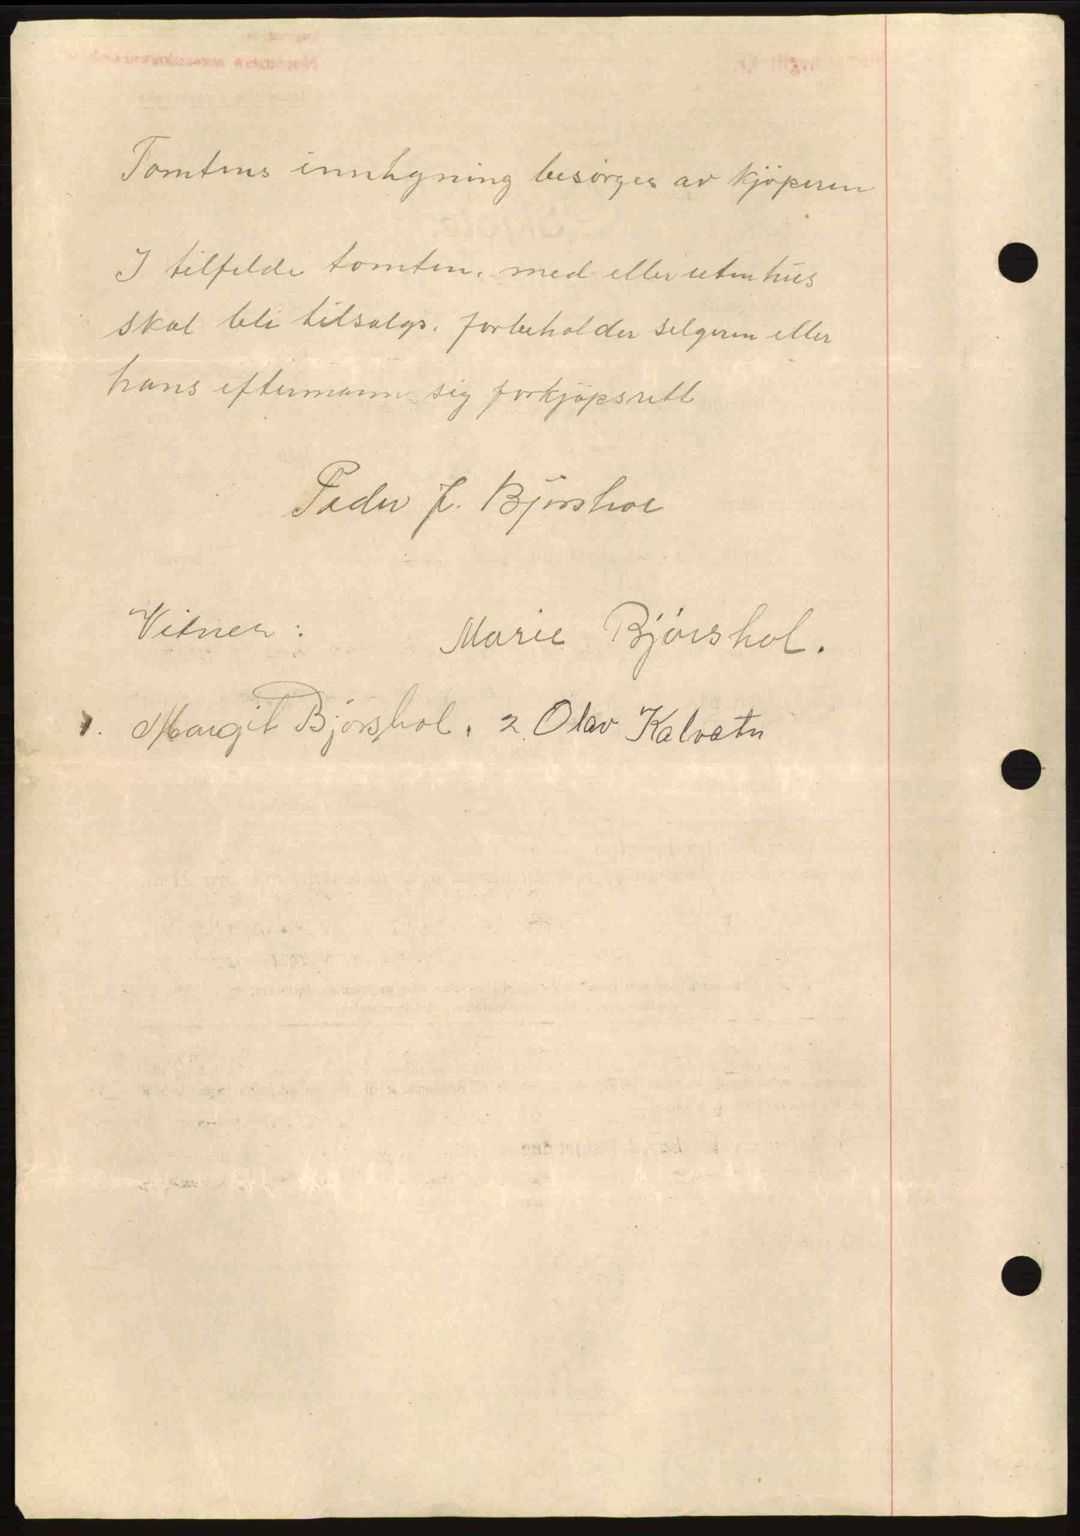 Tomtens innhegning besørges av kjøperen
I tilfelde tomten, med eller uten hus
skal bli tilsalgs, forbeholder selgeren eller
hans eftermann sig forkjøpsrett
Peder J. Bjørshol
Vitner:
Marie Bjørshol.
1. Margit Bjørshol, 2. Olav Kalvatn